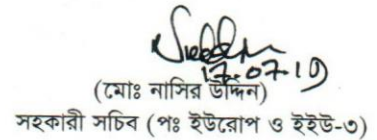 17.07.19
(মোঃ নাসির উদ্দিন)
সহকারী সচিব (পঃ ইউরোপ ও ইইউ-৩)